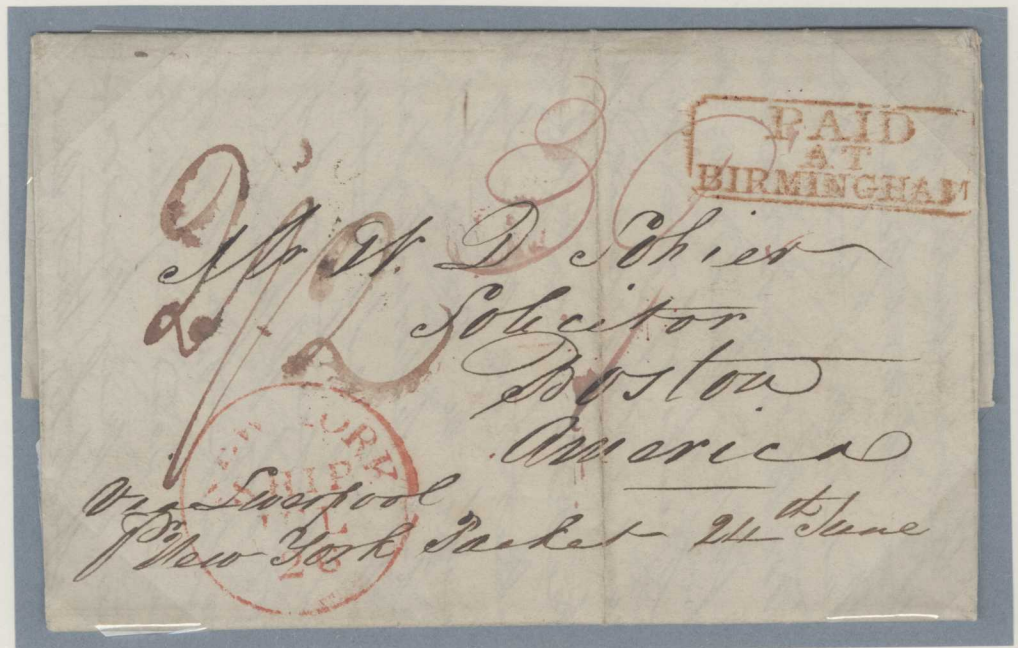 PAID
AT
BIRMINGHAM
Mr W. D Sohier
Solicitor
Boston
America
NEW YORK
SHIP
JUL
26
via Liverpool
pr New York Packet 24th June